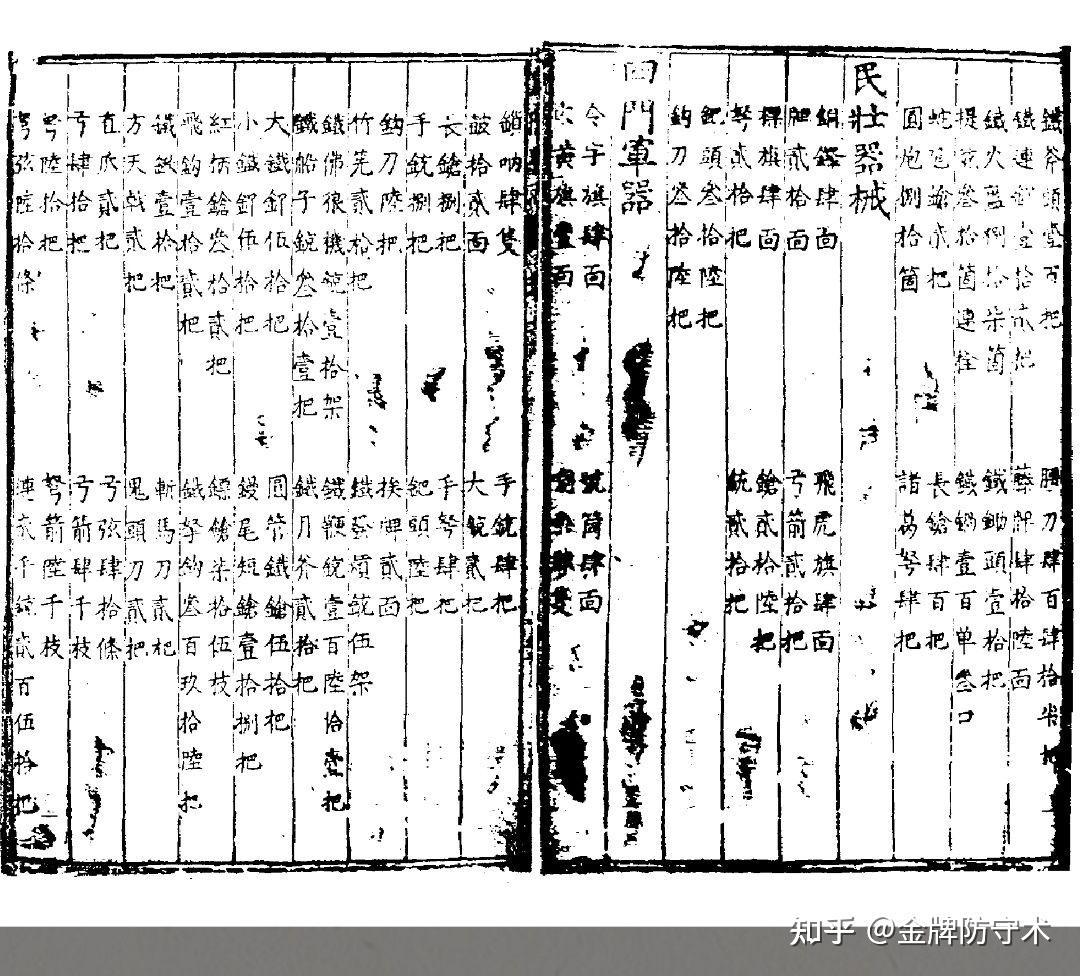 鐵斧頭壹百把　腰刀肆百肆拾柒把
鐵連壹拾貳把　藤牌肆拾陸面
鐵火藍捌拾柒箇　鐵鋤頭壹拾把
提叁拾箇連栓　鐵鍋壹百单叁口
蛇鎗貳把　長鎗肆百把
圓炮捌拾箇　諸葛弩肆把
民壯器械
銅鑼肆面　飛虎旗肆面
貳拾面　弓箭貳拾把
標旗肆面　鎗貳拾陸把
弩貳拾把　銃貳拾把
鈀頭叁拾陸把
鈎刀叁拾陸把
四門軍器
令字旗肆面　號筒肆面
黃旗壹面
鎖呐肆隻　手銃肆把
皷拾貳面　大銃貳把
長鎗捌把　手弩肆把
手銃捌把　鈀頭陸把
鈎刀陸把　挨牌貳面
竹筅貳拾把　鐵熕銃伍架
鐵佛狼機銃壹拾架　鐵鞭銃壹百陸拾壹把
鐵船子銃叁拾壹把　鐵月斧貳拾把
大鐵伍拾把　圓管鐵鎗伍拾把
小鐵伍拾把　鏝尾短鎗壹拾捌把
紅柄鎗叁拾貳把　鏢鎗柒拾伍枝
飛鈎壹拾貳把　鐵拏鈎叁百玖拾陸把
鐵壹拾把　斬馬刀貳把
方天戟貳把　鬼頭刀貳把
直瓜貳把　弓弦肆拾條
弓肆拾把　弓箭肆千枝
弩陸拾把　弩箭陸千枝
弩弦陸拾條　銃貳百伍拾把
知乎 @金牌防守术